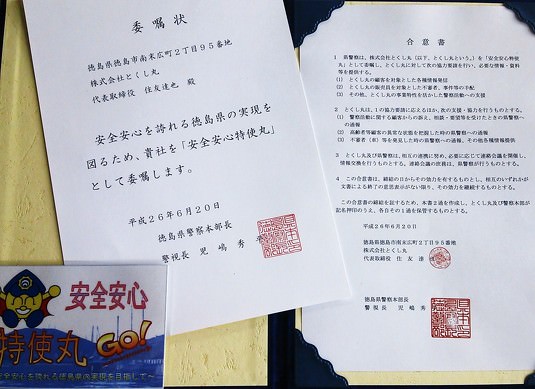 委嘱状
徳島県徳島市南末広町2丁目95番地
株式会社とくし丸
代表取締役 住友達也 殿
安全安心を誇れる徳島県の実現を
図るため、貴社を「安全安心特使丸」
として委嘱します。
平成26年6月20日
徳島県警察本部長
警視長 児嶋秀平
合意書
1 県警察は、株式会社とくし丸(以下、とくし丸という。)を「安全安心特使
丸」として委嘱し、とくし丸に対して次の協力要請を行い、必要な情報・資料
等を提供する。
(1) とくし丸の顧客を対象とした各種情報発信
(2) とくし丸の販売員を対象とした不審者、事件等の手配
(3) その他、とくし丸の事業特性を活かした警察活動への支援
2 とくし丸は、1の協力要請に応えるほか、次の支援・協力を行うものとする。
(1) 警察活動に関する顧客からの訴え、相談・要望等を受けたときの県警察へ
の通報
(2) 高齢者等顧客の異常な状態を把握した時の県警察への通報
(3) 不審者(車)等を発見した時の県警察への通報、その他各種情報提供
3 とくし丸及び県警察は、相互の連携に努め、必要に応じて連絡会議を開催し、
情報交換を行うものとする。連絡会議の庶務は、県警察が行うものとする。
4 この合意書は、締結の日からその効力を有するものとし、相互のいずれかが
文書による終了の意思表示がない限り、その効力を継続するものとする。
この合意書の締結を証するため、本書2通を作成し、とくし丸及び県警察本部が
記名押印のうえ、各自その1通を保管するものとする。
平成26年6月20日
徳島県徳島市南末広町2丁目95番地
株式会社とくし丸
代表取締役 住友達
徳島県警察本部長
警視長 児嶋秀
安全安心
特使丸 GO!
安全安心を誇れる徳島県内実現を目指して〜